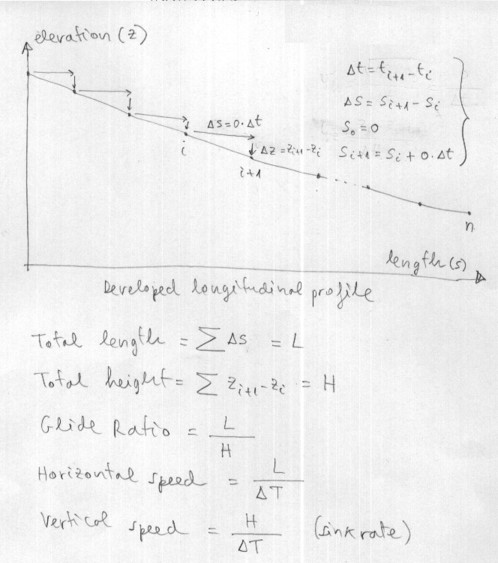 elevation (z)
Δt = t_{i+1} - t_i
ΔS = S_{i+1} - S_i
S_0 = 0
S_{i+1} = S_i + υ·Δt
ΔS = υ·Δt
Δz = z_{i+1} - z_i
i
i+1
n
length (s)
Developed longitudinal profile
Total length = ∑ ΔS = L
Total height = ∑ z_{i+1} - z_i = H
Glide Ratio = L / H
Horizontal speed = L / ΔT
Vertical speed = H / ΔT (sink rate)